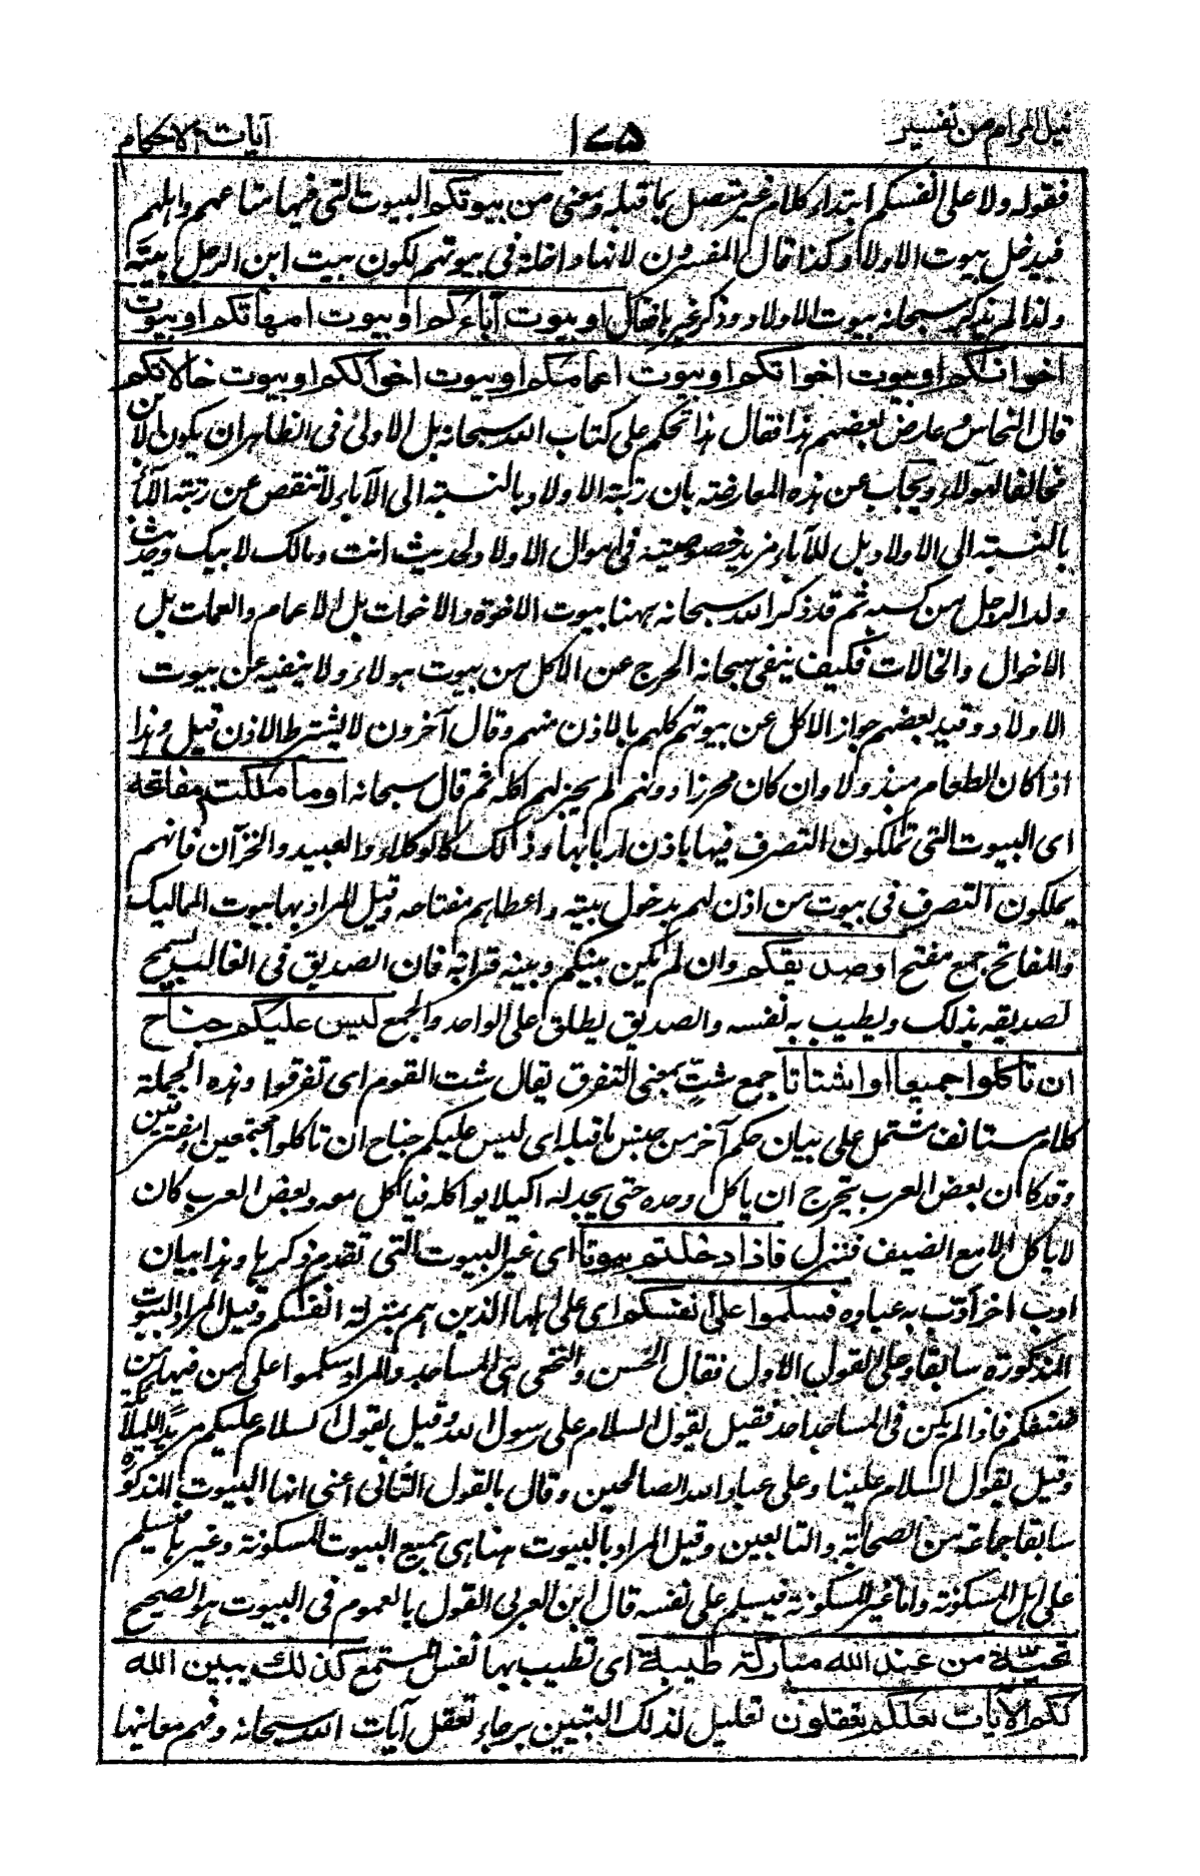 نيل المرام من تفسير ١٧٥ آيات الاحكام
فقوله ولا على انفسكم ابتداء كلام غير متصل بما قبله ومعنى من بيوتكم البيوت التى فيها متاعهم واهلهم
فيدخل بيوت الاولاد كذا قال المفسرون لانها داخلة فى بيوتهم لكون بيت ابن الرجل بيته
ولذا لم يذكر سبحانه بيوت الاولاد وذكر غيرها فقال او بيوت آباءكم او بيوت امهاتكم او بيوت
اخوانكم او بيوت اخواتكم او بيوت اعمامكم او بيوت اخوالكم او بيوت خالاتكم
قال النحاس وعارض بعضهم هذا فقال هذا تحكم على كتاب الله سبحانه بل الاولى فى الظاهر ان يكون الابن
مخالفا لهولاء ويجاب عن هذه المعارضة بان رتبة الاولاد بالنسبة الى الآباء لا تنقص عن رتبة الآباء
بالنسبة الى الاولاد بل للآباء مزيد خصوصية فى اموال الاولاد لحديث انت ومالك لابيك وحديث
ولد الرجل من كسبه ثم قد ذكر الله سبحانه ههنا بيوت الاخوة والاخوات بل الاعمام والعمات بل
الاخوال والخالات فكيف ينفى سبحانه الحرج عن الاكل من بيوت هولاء ولا ينفيه عن بيوت
الاولاد وقيد بعضهم جواز الاكل عن بيوتهم كلهم بالاذن منهم وقال آخرون لا يشترط الاذن قيل وهذا
اذا كان الطعام مبذولا وان كان محرزا دونهم لم يجز لهم اكله ثم قال سبحانه او ما ملكتم مفاتحه
اى البيوت التى تملكون التصرف فيها باذن اربابها وذلك كالوكلاء والعبيد والخزآن فانهم
يملكون التصرف فى بيوت من اذن لهم بدخول بيته واعطاهم مفتاحه وقيل المراد بها بيوت المماليك
والمفاتح جمع مفتح او صديقكم وان لم يكن بينكم وبينه قرابة فان الصديق فى الغالب يسمح
لصديقه بذلك ويطيب به نفسه والصديق يطلق على الواحد والجمع ليس عليكم جناح
ان تاكلوا جميعا او اشتاتا جمع شتّ بمعنى التفرق يقال شت القوم اى تفرقوا وهذه الجملة
كلام مستانف مشتمل على بيان حكم آخر من جنس ما قبله اى ليس عليكم جناح ان تاكلوا مجتمعين او متفرقين
وقد كان بعض العرب يتحرج ان ياكل وحده حتى يجد له اكيلا يواكله فياكل معه وبعض العرب كان
لا ياكل الا مع الضيف فنزل فاذا دخلتم بيوتا اى غير البيوت التى تقدم ذكرها وهذا بيان
ادب اخر ادّب به عباده فسلموا على انفسكم اى على اهلها الذين هم بمنزلة انفسكم وقيل المراد البيوت
المذكورة سابقا وعلى القول الاول فقال الحسن والنخعى هى المساجد والمراد سلموا على من فيها من
صنفكم فاذا لم يكن فى المساجد احد فقيل يقول السلام على رسول الله وقيل يقول السلام عليكم مريدا للملائكة
وقيل يقول السلام علينا وعلى عباد الله الصالحين وقال بالقول الثانى اعنى انها البيوت المذكورة
سابقا جماعة من الصحابة والتابعين وقيل المراد بالبيوت هنا هى جميع البيوت المسكونة وغيرها فيسلم
على اهل المسكونة واما غير المسكونة فيسلم على نفسه قال ابن العربى القول بالعموم فى البيوت هو الصحيح
تحيّة من عند الله مباركة طيبة اى تطيب بها نفس المستمع كذلك يبين الله
لكم الآيات لعلكم تعقلون تعليل لذلك التبيين برجاء تعقل آيات الله سبحانه وفهم معانيها